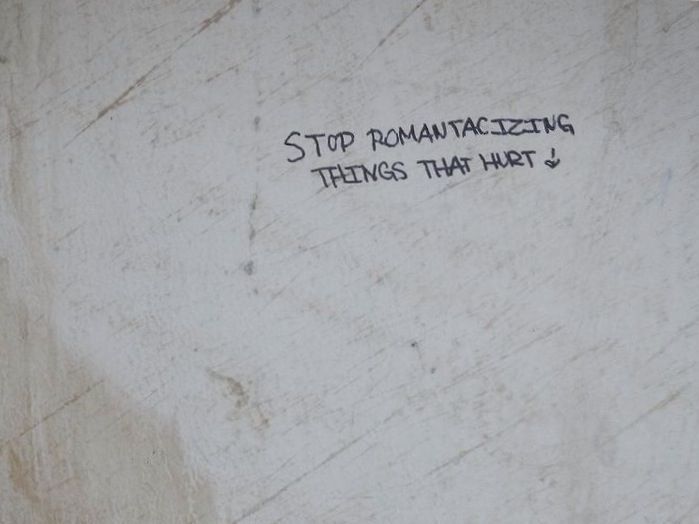 STOP ROMANTACIZING
THINGS THAT HURT